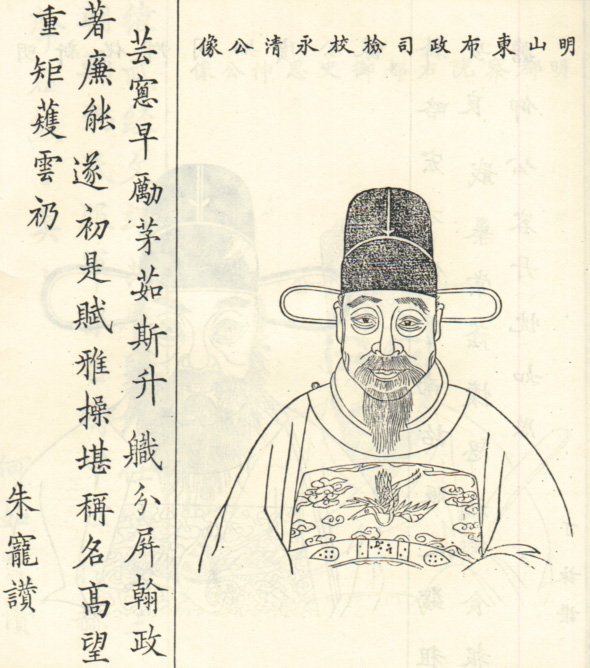 明山東布政司檢校永清公像
芸窻早勵茅茹斯升 軄分屏翰政
著廉能遂初是賦雅操堪稱名髙望
重矩矱雲礽
朱寵讚